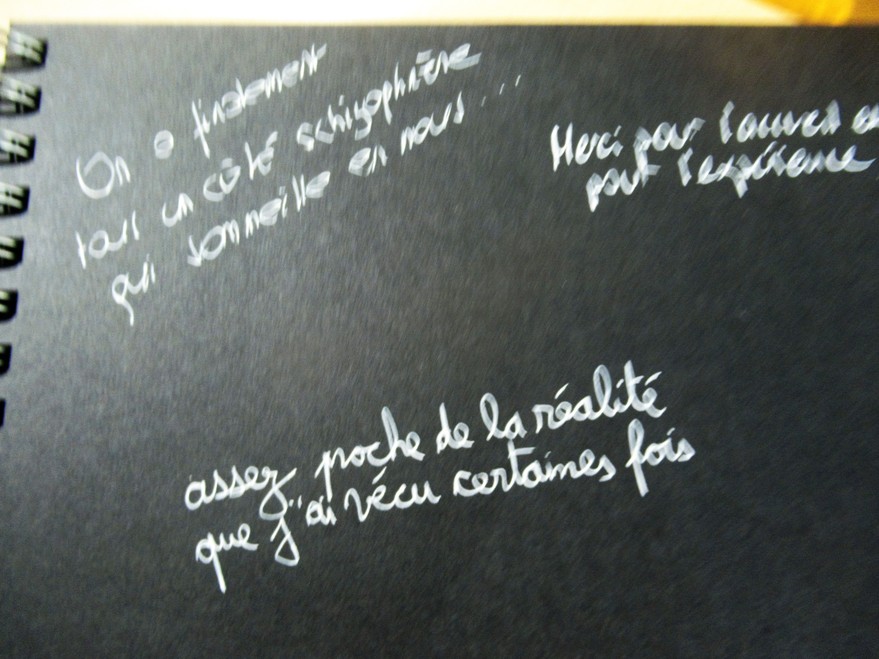 On a finalement
tous un côté schizophrène
qui sommeille en nous...
Merci pour l'accueil
pour l'expérience
assez poche de la réalité
que j'ai vécu certaines fois